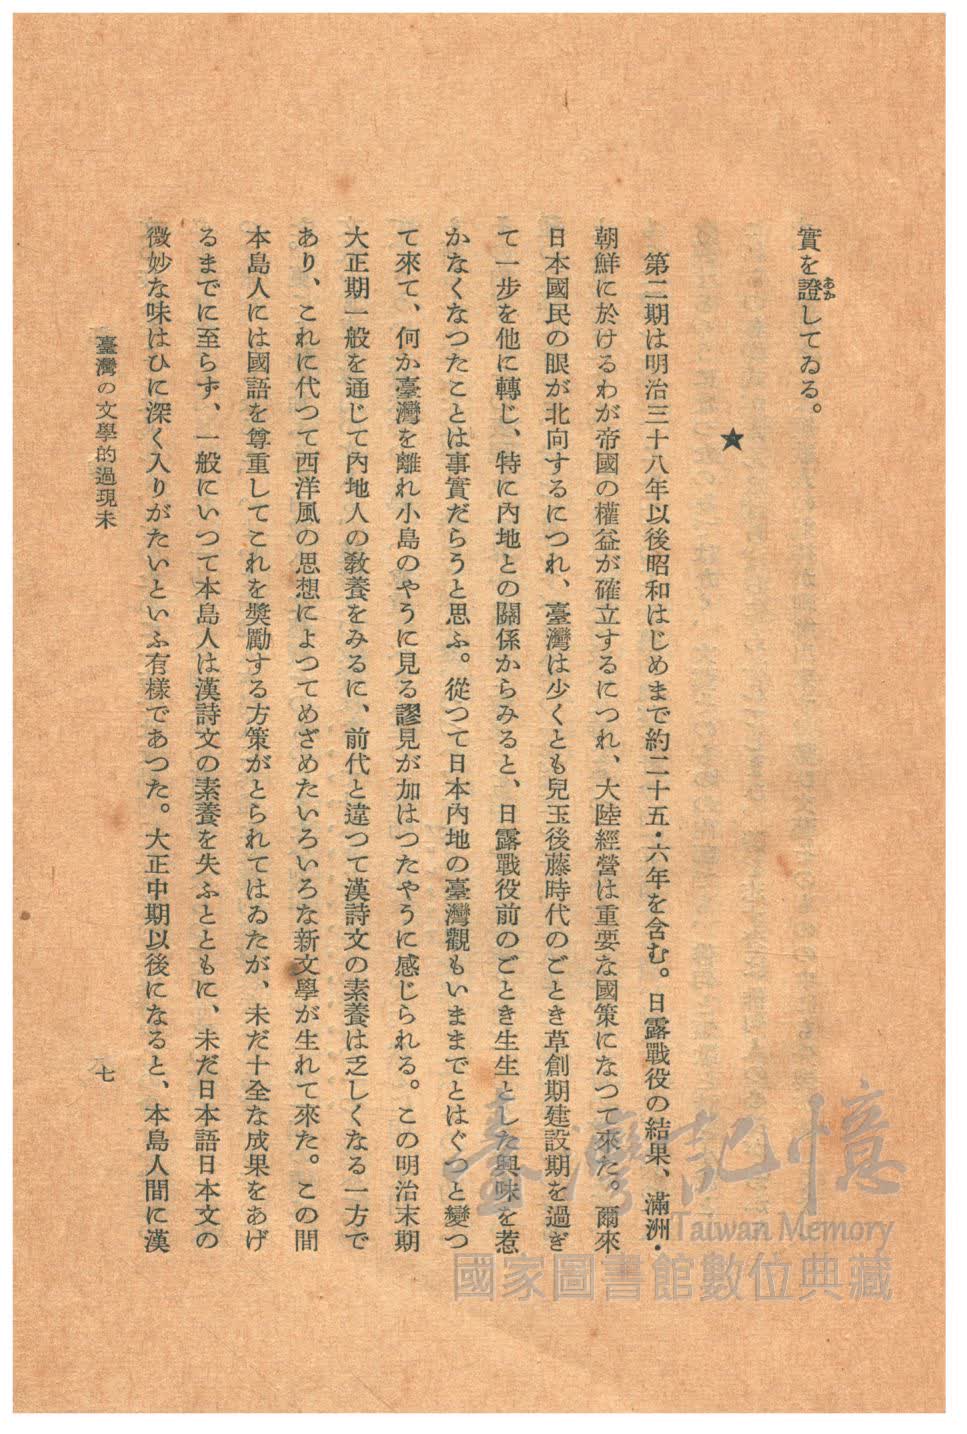 實を證してゐる。
あか
★
第二期は明治三十八年以後昭和はじめまで約二十五・六年を含む。日露戰役の結果、滿洲・
朝鮮に於けるわが帝國の權益が確立するにつれ、大陸經營は重要な國策になつて來た。爾來
日本國民の眼が北向するにつれ、臺灣は少くとも兒玉後藤時代のごとき草創期建設期を過ぎ
て一步を他に轉じ、特に內地との關係からみると、日露戰役前のごとき生生とした興味を惹
かなくなつたことは事實だらうと思ふ。從つて日本內地の臺灣觀もいままでとはぐつと變つ
て來て、何か臺灣を離れ小島のやうに見る謬見が加はつたやうに感じられる。この明治末期
大正期一般を通じて內地人の敎養をみるに、前代と違つて漢詩文の素養は乏しくなる一方で
あり、これに代つて西洋風の思想によつてめざめたいろいろな新文學が生れて來た。この間
本島人には國語を尊重してこれを奬勵する方策がとられてはゐたが、未だ十全な成果をあげ
るまでに至らず、一般にいつて本島人は漢詩文の素養を失ふとともに、未だ日本語日本文の
微妙な味はひに深く入りがたいといふ有樣であつた。大正中期以後になると、本島人間に漢
臺灣の文學的過現未
七
臺灣記憶
Taiwan Memory
國家圖書館數位典藏